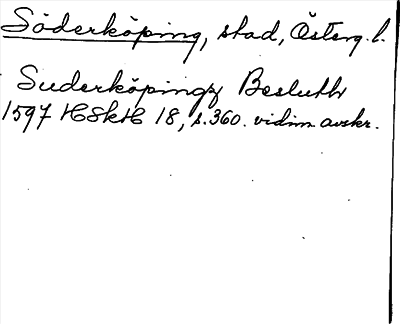 Söderköping, stad, Österg. l.
Suderköpingz Besluth
1597 HSkH 18, s. 360. vidim. avskr.